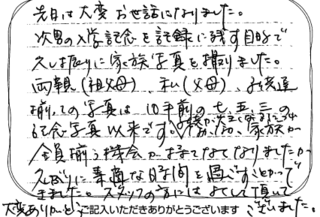 先日は大変お世話になりました。
次男の入学記念を記録に残す目的で
久しぶりに家族写真を撮りました。
両親(祖父母)、私(父母)、お孫達
揃っての写真は、10年前の七、五、三の
記念写真以来です。家族が
全員揃う機会が持てなくなりましたが
久しぶりに素適な時間を過ごすことがで
きました。スタッフの方にはよくして頂いて
大変ありがとうございました。
ご記入いただきありがとうございます